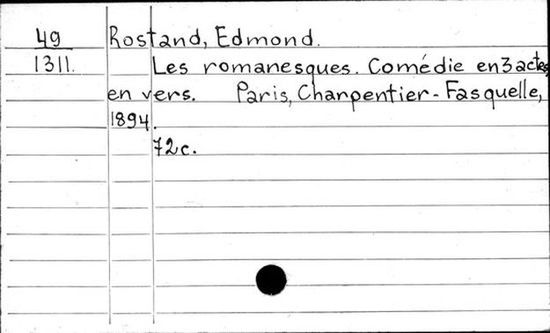 49 Rostand, Edmond.
1311. Les romanesques. Comédie en 3 actes,
en vers. Paris, Charpentier-Fasquelle,
1894.
72c.